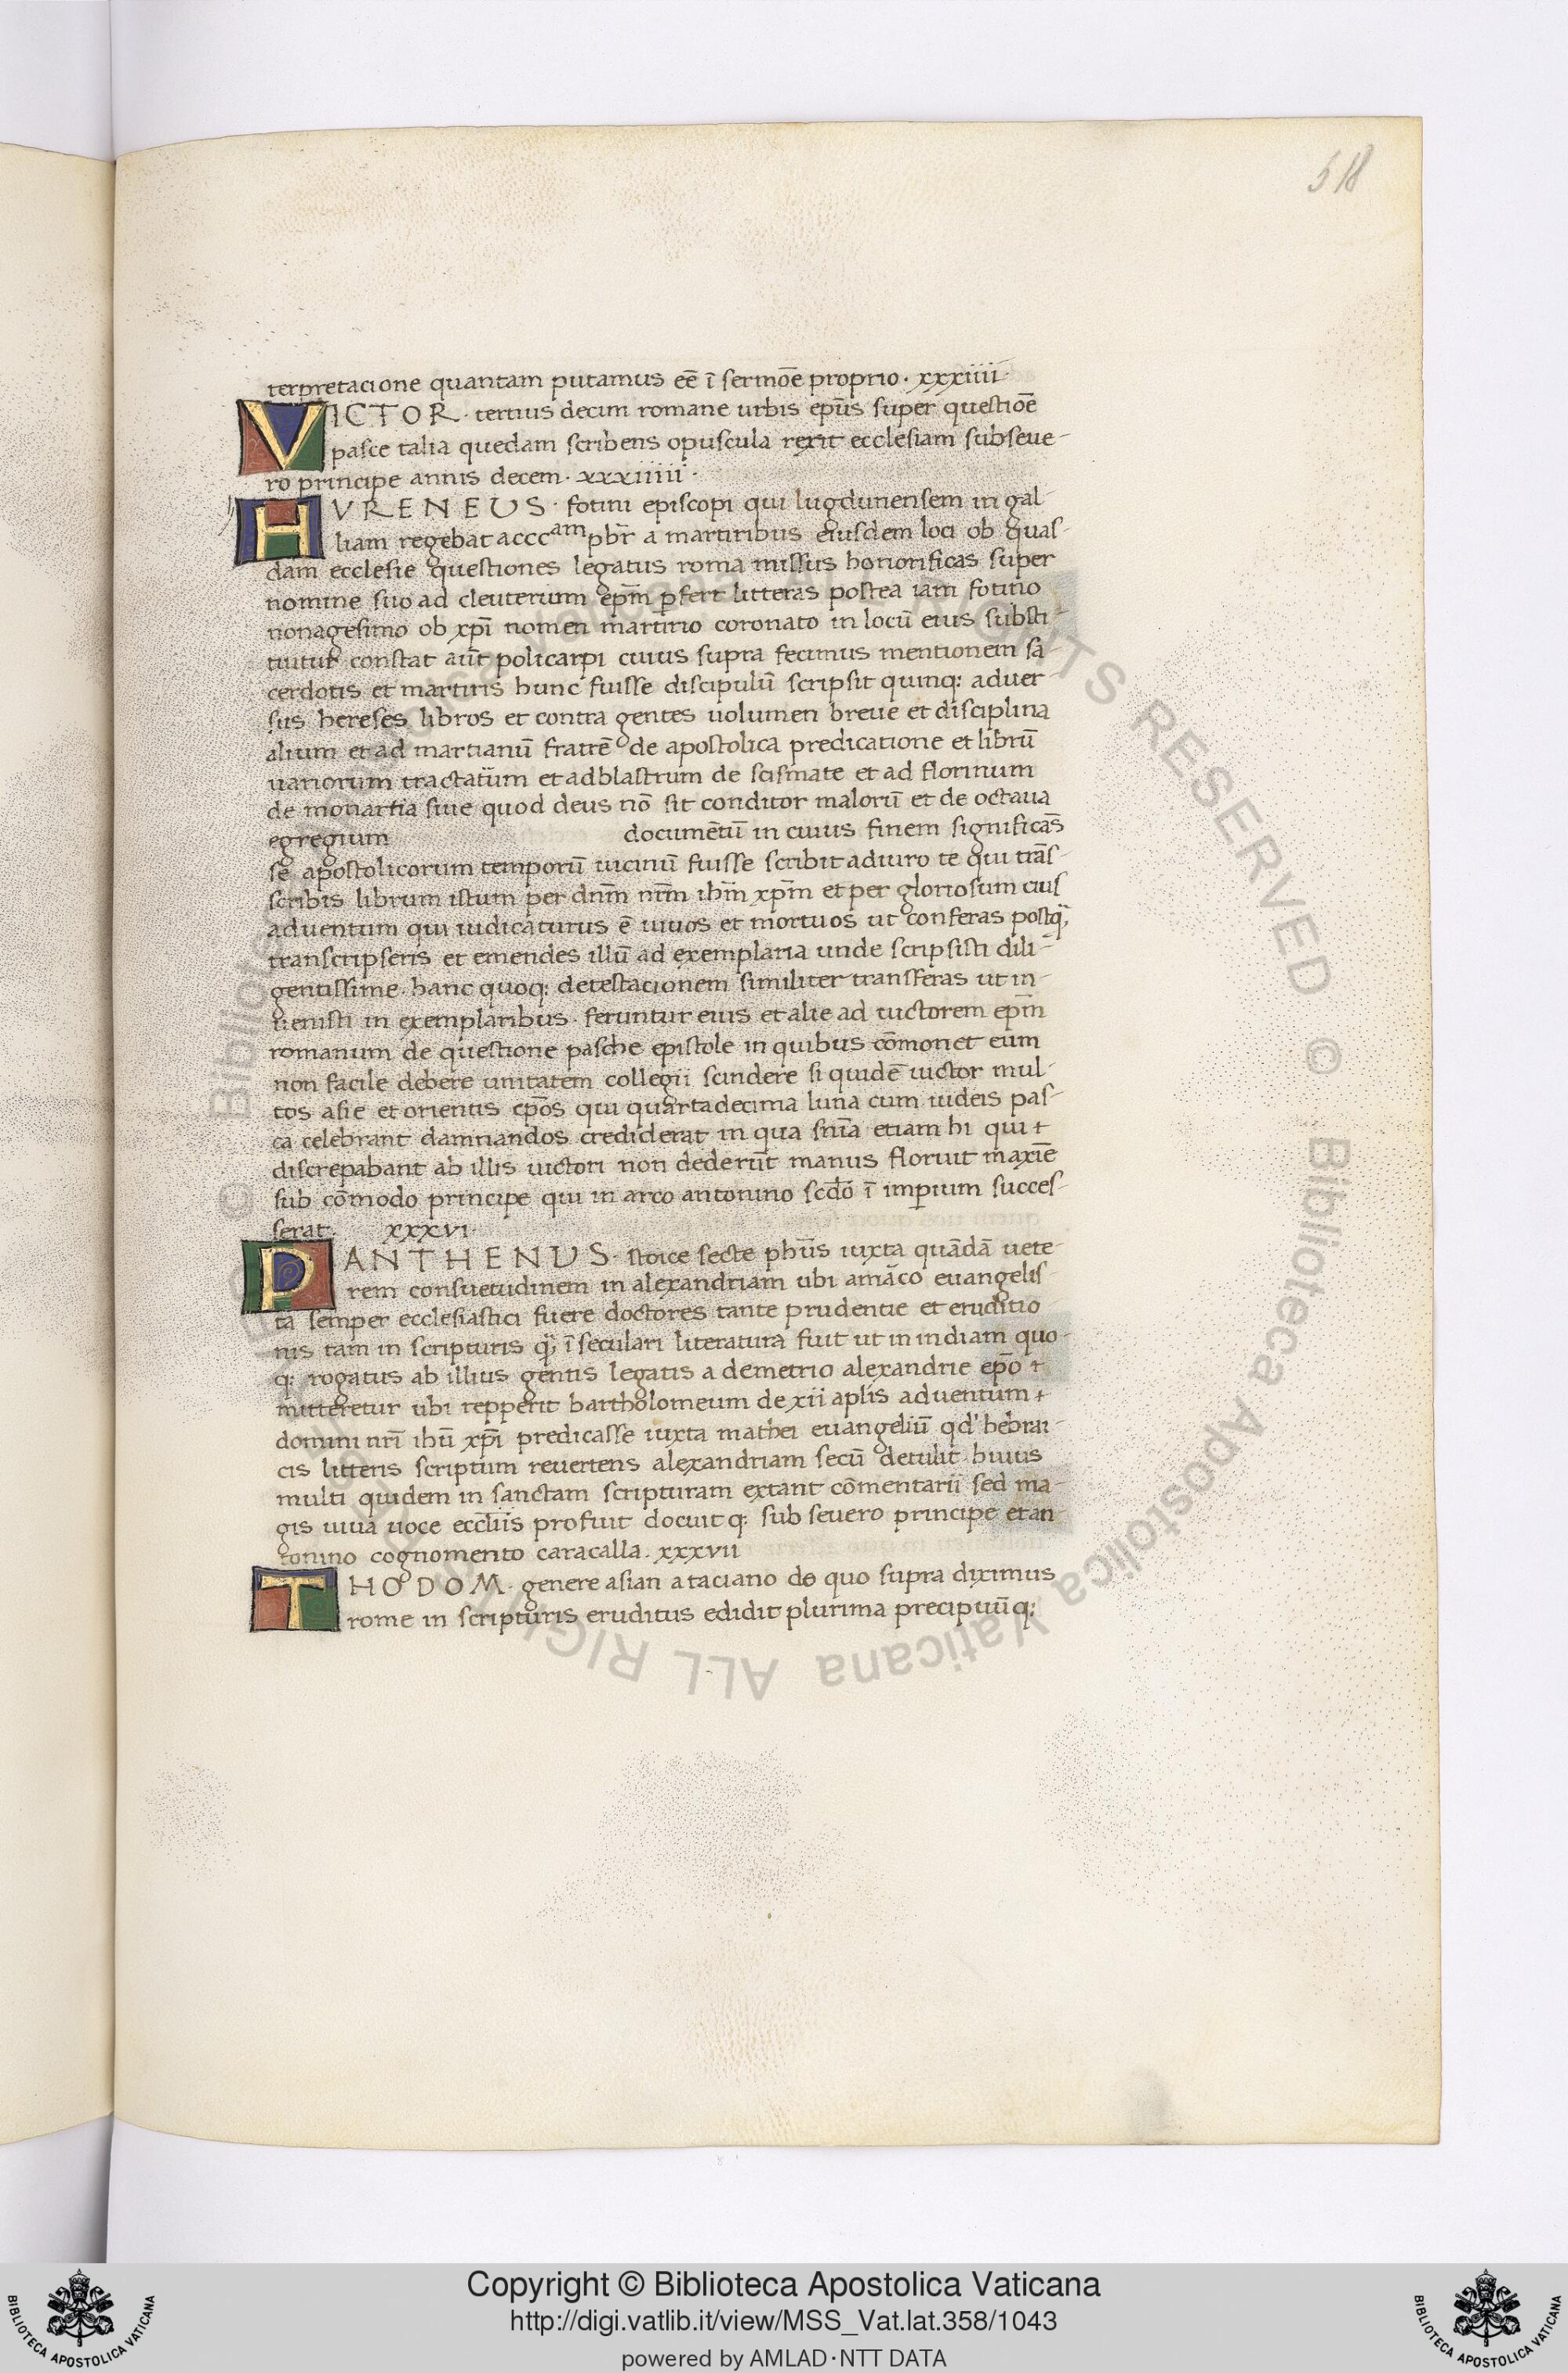 518
terpretacione quantam putamus eē ī sermōe proprio · xxxiiii ·
VICTOR · tertius decim romane urbis ep̄us super questiōe
pasce talia quedam scribens opuscula rexit ecclesiam subseue-
ro principe annis decem · xxxiiiii ·
HVRENEUS · fotini episcopi qui lugdunensem in gal-
liam regebat acccᵃᵐ pbr̄ a martiribus eiusdem loci ob quas-
dam ecclesie questiones legatus roma missus honorificas super
nomine suo ad cleuterum ep̄m ꝑfert litteras postea iam fotino
nonagesimo ob xp̄i nomen martirio coronato in locū eius substi-
tiutur constat aūt policarpi cuius supra fecimus mentionem sa-
cerdotis et martiris hunc fuisse discipulū scripsit quinq: aduer-
sus hereses libros et contra gentes uolumen breue et disciplina
alium et ad martianū fratrē de apostolica predicatione et librū
uariorum tractatuum et adblastrum de scismate et ad florinum
de monartia siue quod deus nō sit conditor malorū et de octaua
egregium documētū in cuius finem significās
se apostolicorum temporū uicinū fuisse scribit adiuro te qui trās-
scribis librum istum per dn̄m nr̄m ih̄m xp̄m et per gloriosum eius
aduentum qui iudicaturus ē uiuos et mortuos ut conferas postq̄;
transcripseris et emendes illū ad exemplaria unde scripsisti dili-
gentissime · hanc quoq: detestacionem similiter transferas ut in-
uenisti in exemplaribus · feruntur eius et alie ad uictorem ep̄m
romanum de questione pasche epistole in quibus cōmonet eum
non facile debere unitatem collegii scindere si quidē uictor mul-
tos asie et orientis ep̄os qui quartadecima luna cum iudeis pas-
ca celebrant damnandos crediderat in qua sn̄ia etiam hi qui +
discrepabant ab illis uictori non dederūt manus floruit maxīe
sub cōmodo principe qui in arco antonino scd̄o ī imꝑium succes-
serat · xxxvi ·
PANTHENUS · stoice secte ph̄us iuxta quādā uete-
rem consuetudinem in alexandriam ubi amāco euangelis-
ta semper ecclesiastici fuere doctores tante prudentie et eruditio
nis tam in scripturis q̄; ī seculari literatura fuit ut in indiam quo-
q: rogatus ab illius gentis legatis a demetrio alexandrie ep̄o +
mitteretur ubi repperit bartholomeum de xii apl̄is aduentum +
domini nr̄i ih̄u xp̄i predicasse iuxta mathei euangeliū qd' hebrai-
cis litteris scriptum reuertens alexandriam secū detulit · huius
multi quidem in sanctam scripturam extant cōmentarii sed ma-
gis uiua uoce eccl̄iis profuit docuit q: sub seuero principe et an-
tonino cognomento caracalla · xxxvii
THODOM · genere asian a taciano de quo supra diximus
rome in scripturis eruditus edidit plurima precipuūq:
© Biblioteca Apostolica Vaticana ALL RIGHTS RESERVED
Copyright © Biblioteca Apostolica Vaticana
http://digi.vatlib.it/view/MSS_Vat.lat.358/1043
powered by AMLAD·NTT DATA
BIBLIOTECA APOSTOLICA VATICANA
BIBLIOTECA APOSTOLICA VATICANA